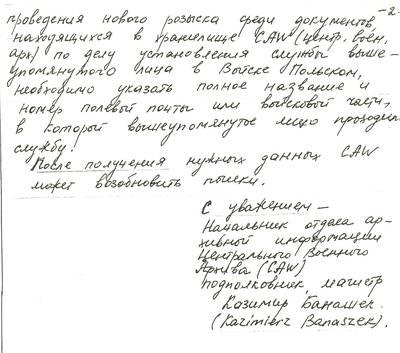 -2-
проведения нового розыска среди документов,
находящихся в хранилище CAW (центр. воен.
арх) по делу установления службы выше-
упомянутого лица в Войске Польском,
необходимо указать полное название и
номер полевый почты или войсковой части,
в которой вышеупомянутое лицо проходило
службу!
После получения нужных данных CAW
может возобновить поиски.
С уважением —
Начальник отдела ар-
хивной информации
Центрального Военного
Архива (CAW)
подполковник, магистр
Казимир Банашек.
(Kazimierz Banaszek).